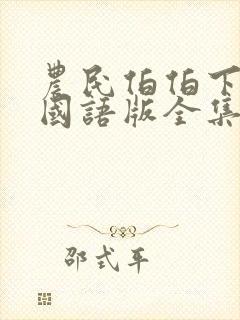 農民伯伯下
國語版全集
邵式平